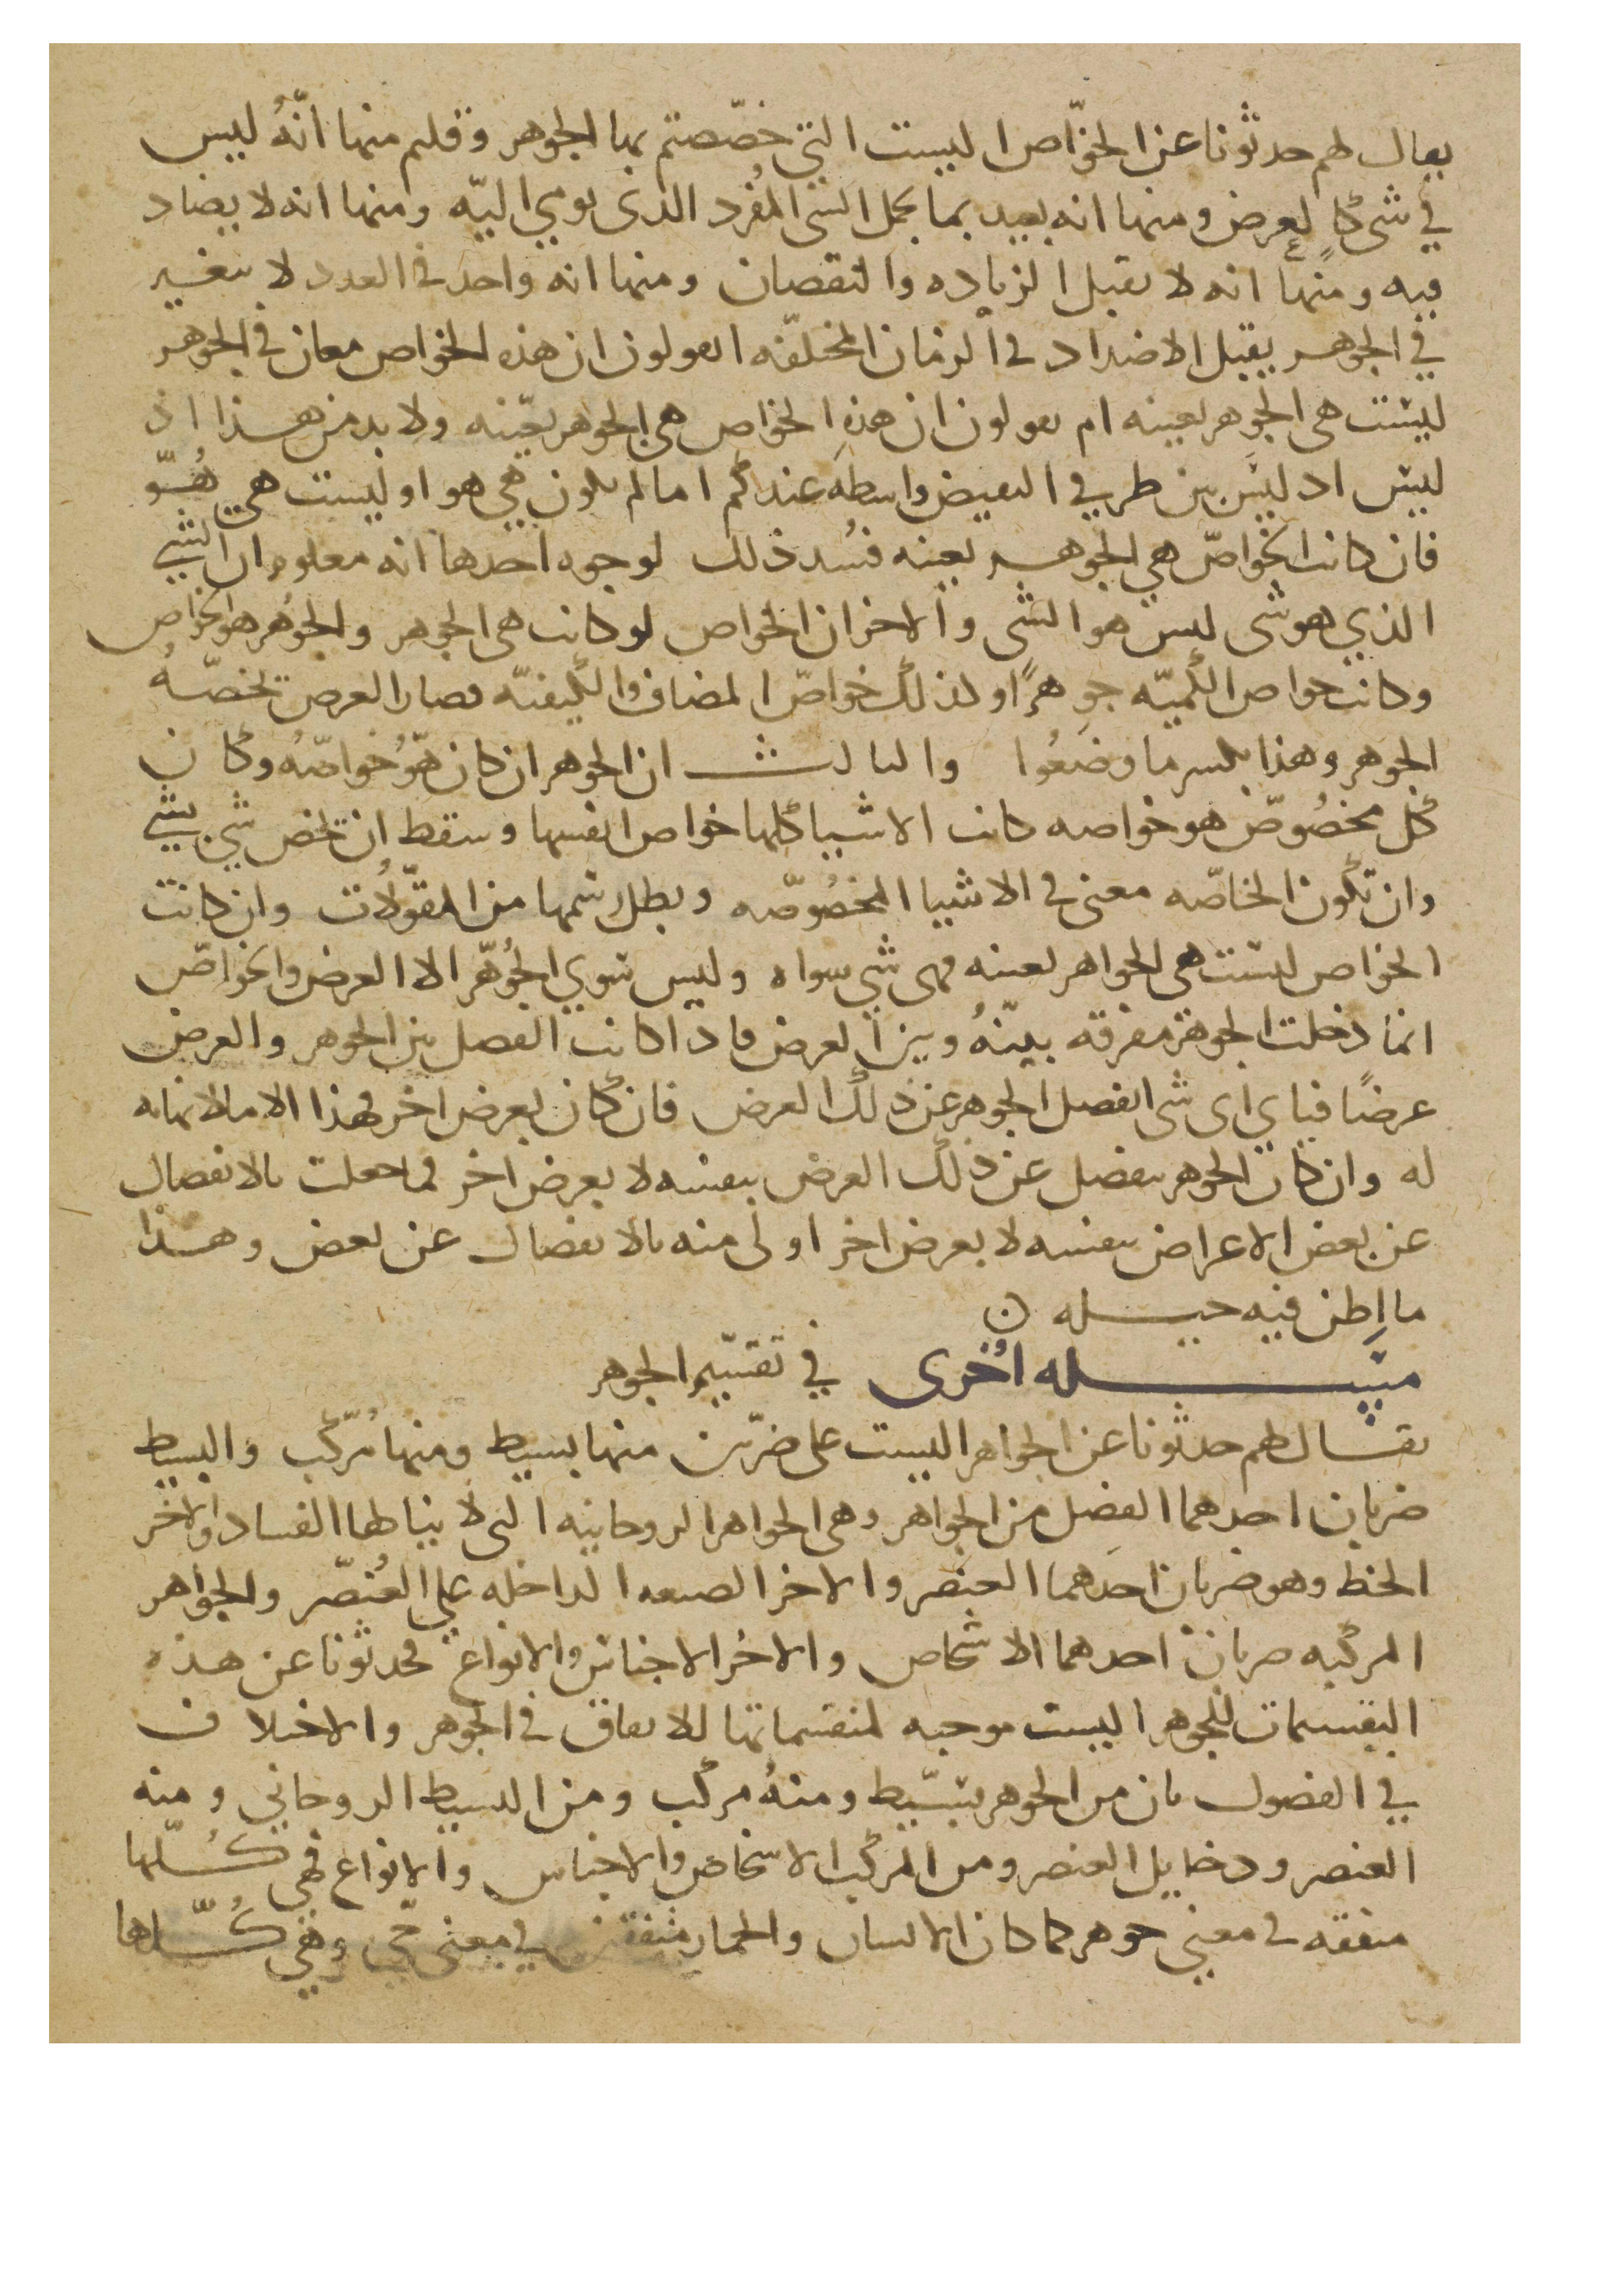 يقال لهم حدثونا عن الخوّاص اليست التي خصّصتم بها الجوهر وقلتم منها انّهُ ليس
في شى كالعرض ومنها انه يفيد بما يحمل الشى المُفرد الذى يومي اليّه ومنها انه لا يضاد
فيه ومنها انه لا يقبل الزياده والنقصان ومنها انه واحد في العدد لا يتغير
في الجوهر يقبل الاضداد في الزمان المختلفه اتقولون ان هذه الخواص معان في الجوهر
ليست هي الجوهر بعينه ام يقولون ان هذه الخوّاص هي الجوهر بعينه ولا بد من هذا اذ
ليس اد ليس بين طرفي النقيض واسطه عندكم اما لم يكون هي هو او ليست هي هُوّ
فان كانت الخواصّ هي الجوهر بعينه فسُد ذلك لوجوه احدها انه معلوم ان الشي
الذي هو شى ليس هو الشى والاخر ان الخواص لو كانت هى الجوهر والجوُهر هو الخواص
وكانت خواص الكميّه جوهرًا وكذلك خواصّ المضاف والكيفيّه فصار العرض تخصّهُ
الجوهر وهذا يكسر ما وضعُوا والثالث ان الجوهر ان كان هوُ خواصّهُ وكان
كل مخصُوصّ هو خواصه كانت الاشيا كلها خواص انفسها وسقط ان تخص شي بشي
وان تكون الخاصّه معنى في الاشيا المخصُوصّه وبطل رسمها من المقوّلاُت وان كانت
الخواص ليست هى الجواهر بعينه فهى شي سواه وليس سوي الجُوهّر الا العرض والخواصّ
انما دخلت الجوهر مفرقه بينّهُ وبين العرض فاذا كانت الفصل بين الجوهر والعرض
عرضًا فباي اى شى انفصل الجوهر عن ذلك العرض فان كان بعرض اخر فهذا الا ما لا نهايه
له وان كان الجوهر ينفصل عن ذلك العرض بنفسه لا بعرض اخر فما جعلت بالانفصال
عن بعض الاعراض بنفسه لا بعرض اخر اولى منه بالانفصال عن بعض وهذا
ما اظن فيه حيله ن
مسله اُخرى في تقسيم الجوهر
يقال لهم حدثونا عن الجواهر اليست على ضربّين منها بسيط ومنها مُركّب والبسيط
ضربان احدهما افضل من الجواهر وهى الجواهر الروحانيه التى لا يناطها الفساد والاخر
احط وهو ضربان احدهما العنصر والاخر الصيغه الداخله علي العُنصّر والجواهر
المركبه ضربان احدهما الاشخاص والاخُر الاجناس والانواع فحدثونا عن هذه
التقسمات للجوهر اليست موجبه لمنقسماتها للاتفاق في الجوهر والاختلاف
في الفصول بان من الجوهر بسّيط ومنهُ مركب ومن البسيط الروحاني ومنه
العنصر ودخايل العنصر ومن المركب الاشخاص والاجناس والانواع فهي كُلّها
متفقه في معنى جوهر كما كان الانسان والحمار متفقين في معنى حّي وهي كُلّها